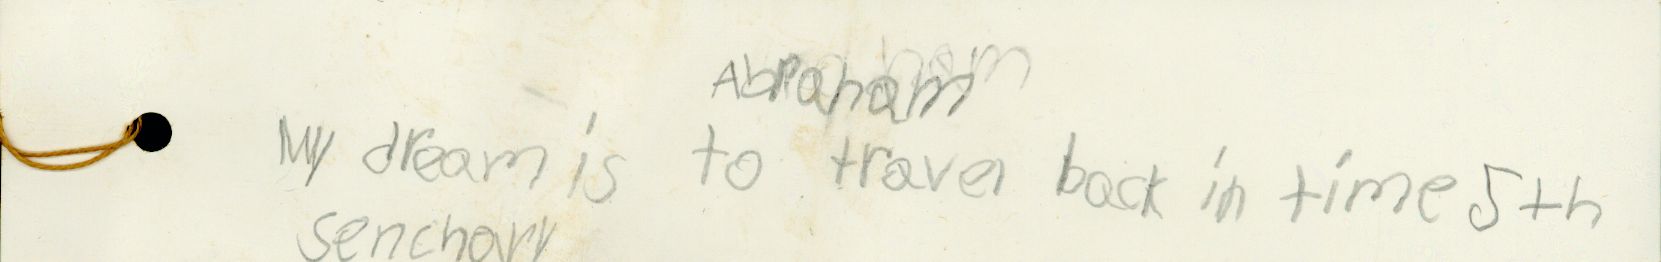 Abraham
My dream is to travel back in time 5th
senchary